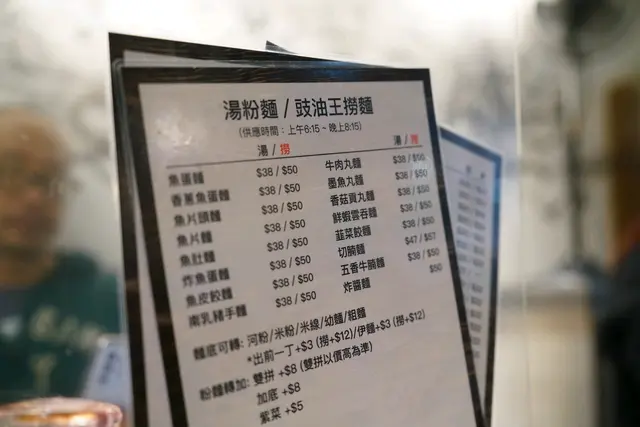 湯粉麵 / 豉油王撈麵
(供應時間：上午6:15 ~ 晚上8:15)
湯 / 撈 湯 / 撈
魚蛋麵 $38 / $50 牛肉丸麵 $38 / $50
香蔥魚蛋麵 $38 / $50 墨魚丸麵 $38 / $50
魚片頭麵 $38 / $50 香菇貢丸麵 $38 / $50
魚片麵 $38 / $50 鮮蝦雲吞麵 $38 / $50
魚肚麵 $38 / $50 韮菜餃麵 $38 / $50
炸魚蛋麵 $38 / $50 切腩麵 $47 / $57
魚皮餃麵 $38 / $50 五香牛腩麵 $38 / $50
南乳豬手麵 $38 / $50 炸醬麵 $50
麵底可轉：河粉/米粉/米線/幼麵/粗麵
*出前一丁+$3 (撈+$12)/伊麵+$3 (撈+$12)
粉麵轉加：雙拼 +$8 (雙拼以價高為準)
加底 +$8
紫菜 +$5